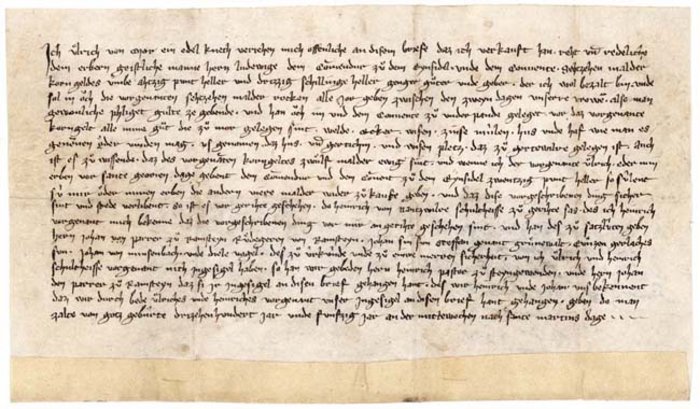 Ich Ulrich von Mor ein edel knech veriehen mich offenliche an disem briefe daz ich verkauft han rehte und redeliche
dem erbern geistliche manne hern Ludewige dem Comendur zu dem Eynsidel unde dem Convente sehzehen malder
korngeldes umbe ahtzig punt heller und drizzig schillinge heller genger guter und geber der ich vol bezalt bin unde
sol in die vorgenanten sehzehen malder rocken alle Jar geben zwischen den zweyn dagen unserre vrowe also man
gewonliche phliget gulte ze gebende und han och im und dem Convente zu underpande geleget vor daz vorgenante
korngelt alle mine gut die zu mor gelegen sint velde ecker wisen zinse mulen hus unde hof wie man es
genennen oder vinden mag us genomen daz hus und wisen pletz daz zu gelegen ist auch
ist es zu wissende daz des vorgenanten korngeltes zwolf malder ewig sint und wenne ich der vorgenant Ulrich oder min
erben vor sante georien dage gebent dem Comendur und dem Convent zu dem Eynsidel zwentzig punt heller so sulent
sy mir oder minen erben die andern viere malder wider zu kaufe geben und daz dise vorgeschribenen ding sicher
sint und stede verlibent so ist es vor gerihte geschehen do heinrich von schultheisse zu gerihte saz des ich heinrich
vorgenant mich bekenne daz die vorgeschribenen ding vor mir an gerihte geschehen sint und han des zu geben
hern Johan von parrer zu Ramsteyn Rudegern von Ramsteyn Johan sin sun steffen genant grunewalt gerlaches
sun Johan von unde diele vagel des zu urkunde unde zu merren sicherheit wan ich Ulrich und heinrich
schultheisse vorgenant nith ingesigel haben so han wir gebeden hern heinrich pastor zu steynewenden unde hern Johan
den parrer zu Ramsteyn daz si ir ingesigel an disen brief gehangen hant des wir heinrich unde Johan uns bekennent
daz wir durch bede Ulriches unde heinriches vorgenant unser Ingesigel an disen brief hant gehangen geben do man
zalte von gotz geburte drizehenhundert Jar unde funfzig Jar an der mittewochen nach sante martins dage